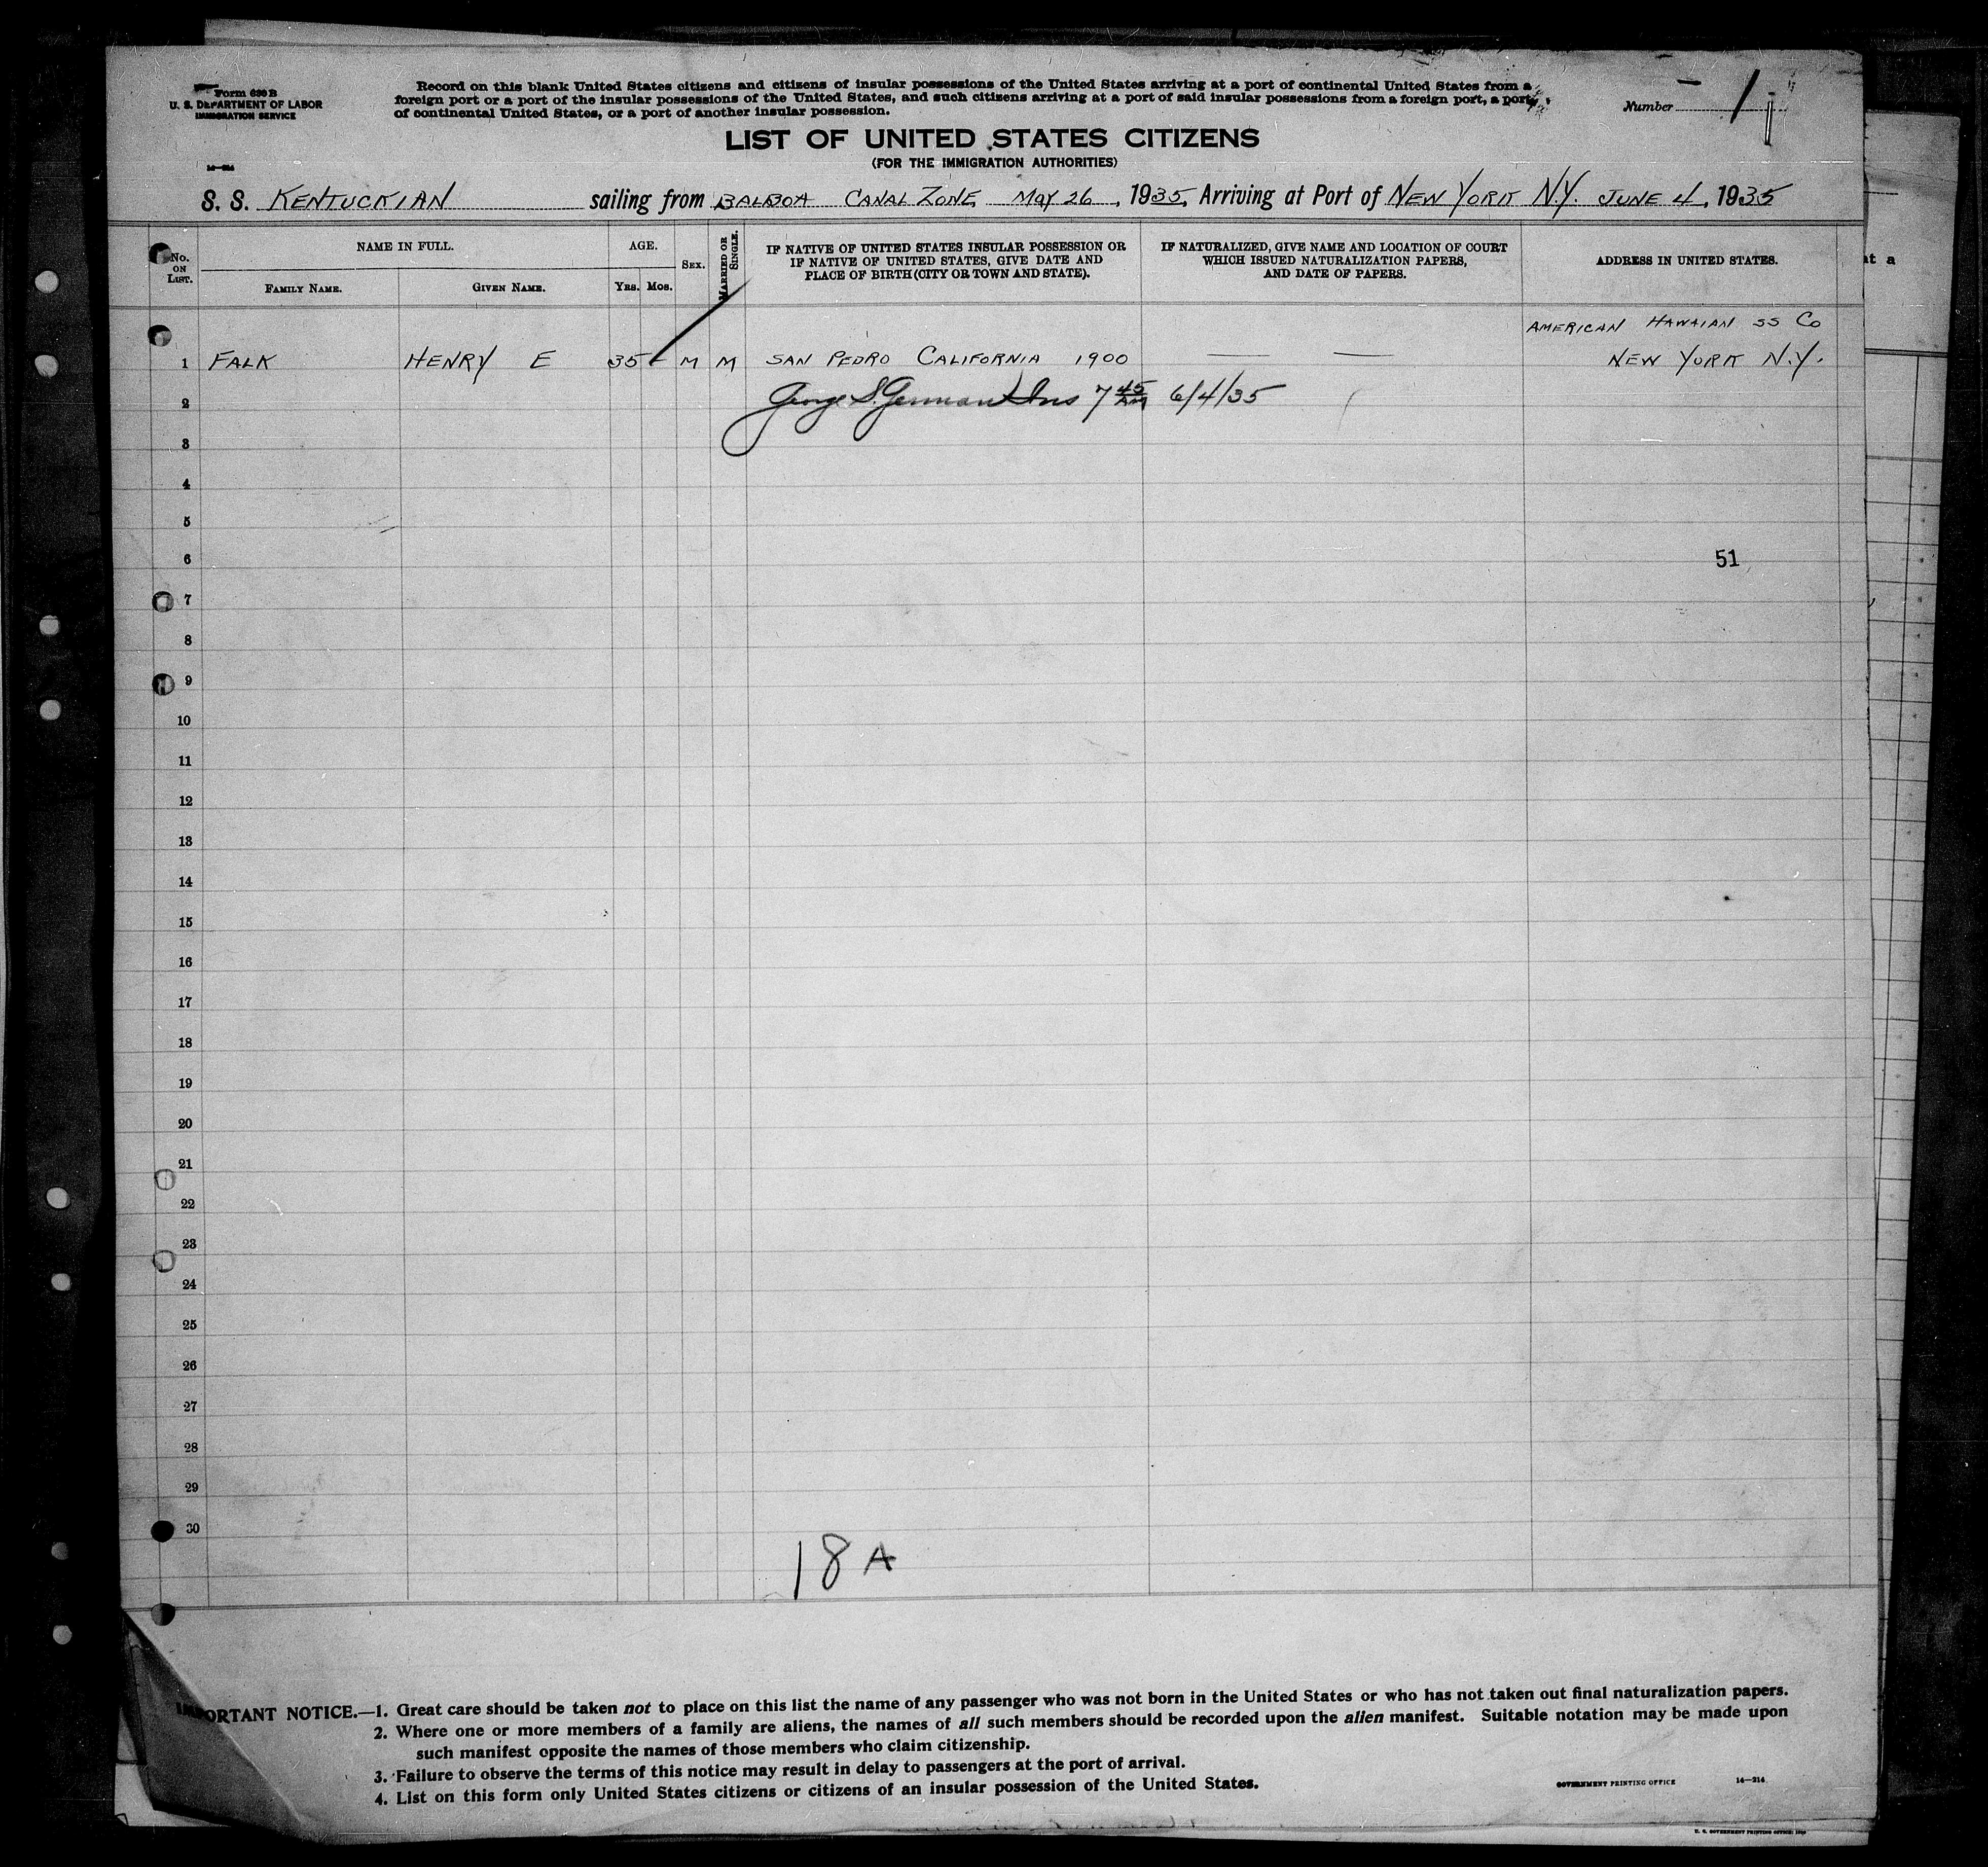 Form 630 B
U. S. DEPARTMENT OF LABOR
IMMIGRATION SERVICE
Record on this blank United States citizens and citizens of insular possessions of the United States arriving at a port of continental United States from a
foreign port or a port of the insular possessions of the United States, and such citizens arriving at a port of said insular possessions from a foreign port, a port
of continental United States, or a port of another insular possession.
Number 1
LIST OF UNITED STATES CITIZENS
(FOR THE IMMIGRATION AUTHORITIES)
14—214
S. S. KENTUCKIAN sailing from BALBOA CANAL ZONE MAY 26, 1935, Arriving at Port of NEW YORK N.Y. JUNE 4, 1935
No. ON LIST.
NAME IN FULL.
FAMILY NAME.
GIVEN NAME.
AGE.
YRS. MOS.
SEX.
MARRIED OR SINGLE.
IF NATIVE OF UNITED STATES INSULAR POSSESSION OR
IF NATIVE OF UNITED STATES, GIVE DATE AND
PLACE OF BIRTH (CITY OR TOWN AND STATE).
IF NATURALIZED, GIVE NAME AND LOCATION OF COURT
WHICH ISSUED NATURALIZATION PAPERS,
AND DATE OF PAPERS.
ADDRESS IN UNITED STATES.
at a
AMERICAN HAWAIAN SS Co
1 FALK HENRY E 35 - M M SAN PEDRO CALIFORNIA 1900 — — NEW YORK N.Y.
2 George S. German Ins 7 45 AM 6/4/35
3
4
5
6 51
7
8
9
10
11
12
13
14
15
16
17
18
19
20
21
22
23
24
25
26
27
28
29
30
18 A
IMPORTANT NOTICE.—1. Great care should be taken not to place on this list the name of any passenger who was not born in the United States or who has not taken out final naturalization papers.
2. Where one or more members of a family are aliens, the names of all such members should be recorded upon the alien manifest. Suitable notation may be made upon
such manifest opposite the names of those members who claim citizenship.
3. Failure to observe the terms of this notice may result in delay to passengers at the port of arrival.
4. List on this form only United States citizens or citizens of an insular possession of the United States.
GOVERNMENT PRINTING OFFICE 14—214
U. S. GOVERNMENT PRINTING OFFICE: